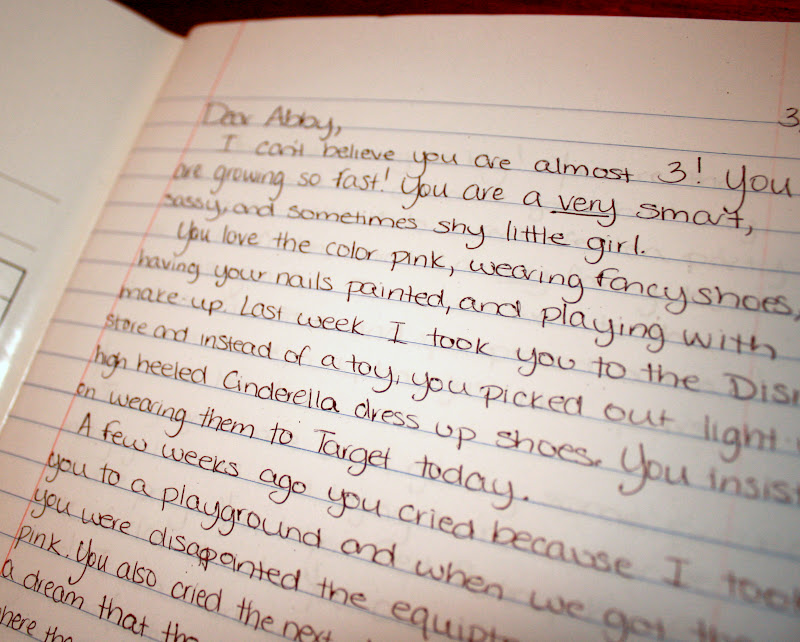 3
Dear Abby,
I can't believe you are almost 3! You
are growing so fast! You are a very smart,
sassy, and sometimes shy little girl.
You love the color pink, wearing fancy shoes,
having your nails painted, and playing with
make-up. Last week I took you to the Disn
store and instead of a toy, you picked out light
high heeled Cinderella dress up shoes. You insist
on wearing them to Target today.
A few weeks ago you cried because I took
you to a playground and when we got
you were disappointed the equip
pink. You also cried the next
a dream that